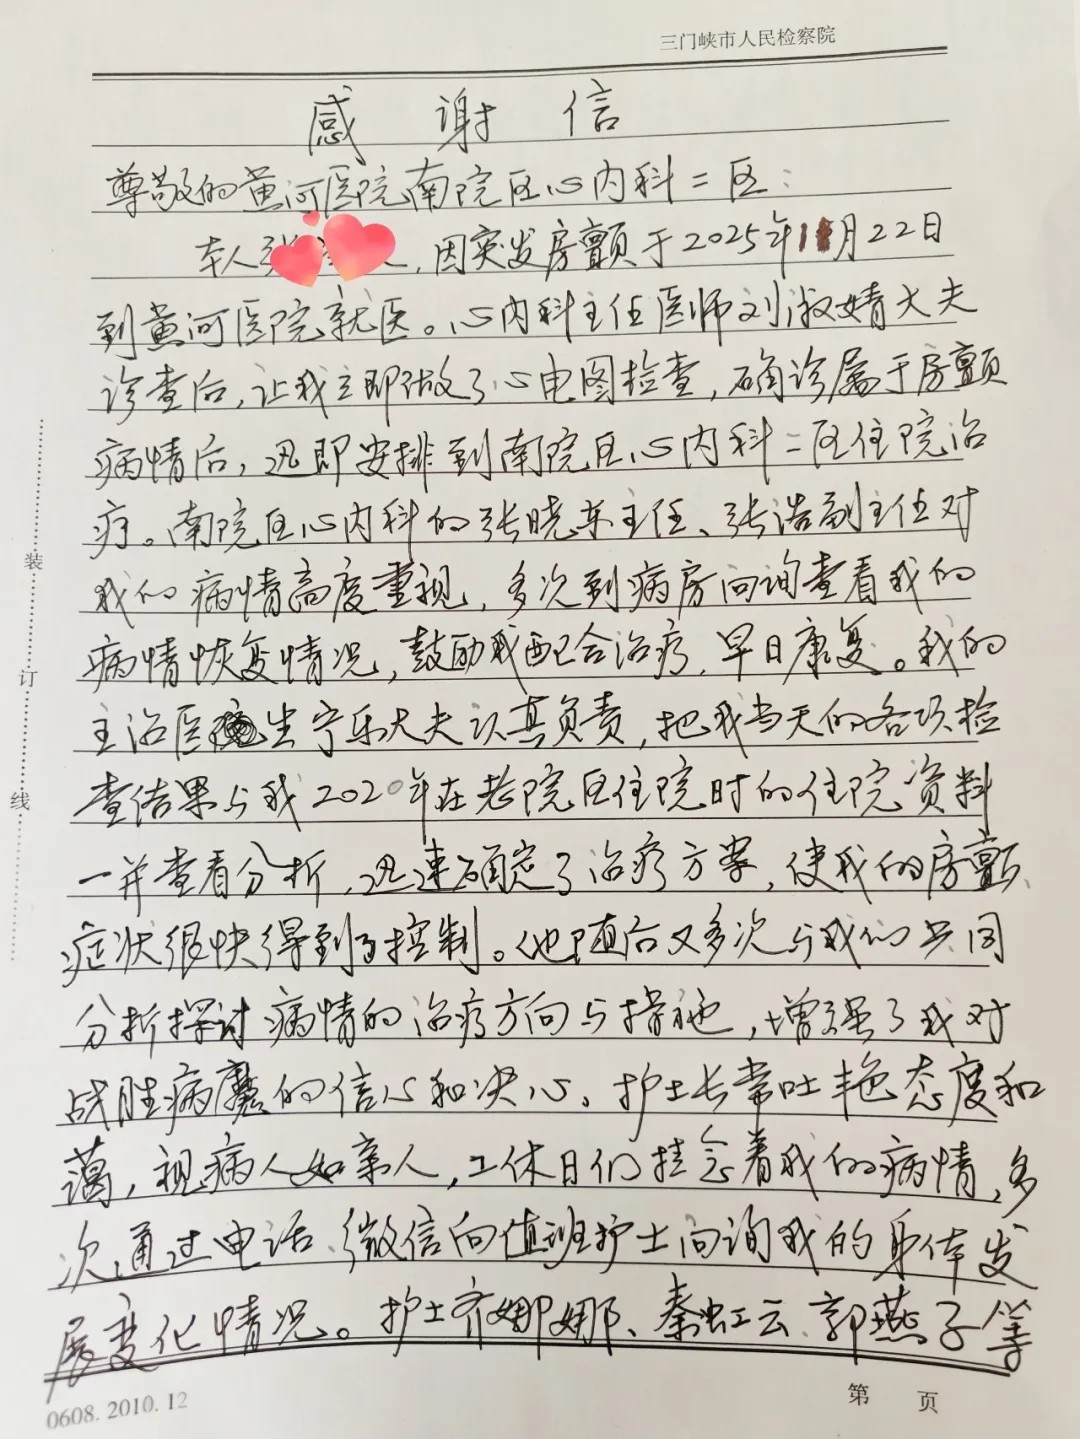 三门峡市人民检察院
感谢信
尊敬的黄河医院南院区心内科二区:
本人张,因突发房颤于2025年1月22日
到黄河医院就医。心内科主任医师刘淑婧大夫
诊查后,让我立即做了心电图检查,确诊属于房颤
病情后,迅即安排到南院区心内科二区住院治
疗。南院区心内科的张晓东主任、张浩副主任对
我的病情高度重视,多次到病房问询查看我的
病情恢复情况,鼓励我配合治疗,早日康复。我的
主治医生宁乐大夫认真负责,把我当天的各项检
查结果与我2020年在老院区住院时的住院资料
一并查看分析,迅速确定了治疗方案,使我的房颤
症状很快得到了控制。他随后又多次与我们共同
分析探讨病情的治疗方向与措施,增强了我对
战胜病魔的信心和决心。护士长常吐艳态度和
蔼,视病人如亲人,工休日们挂念着我的病情,多
次通过电话、微信向值班护士问询我的身体发
展变化情况。护士齐娜娜、秦虹云、郭燕子等
装
订
线
0608.2010.12
第 页